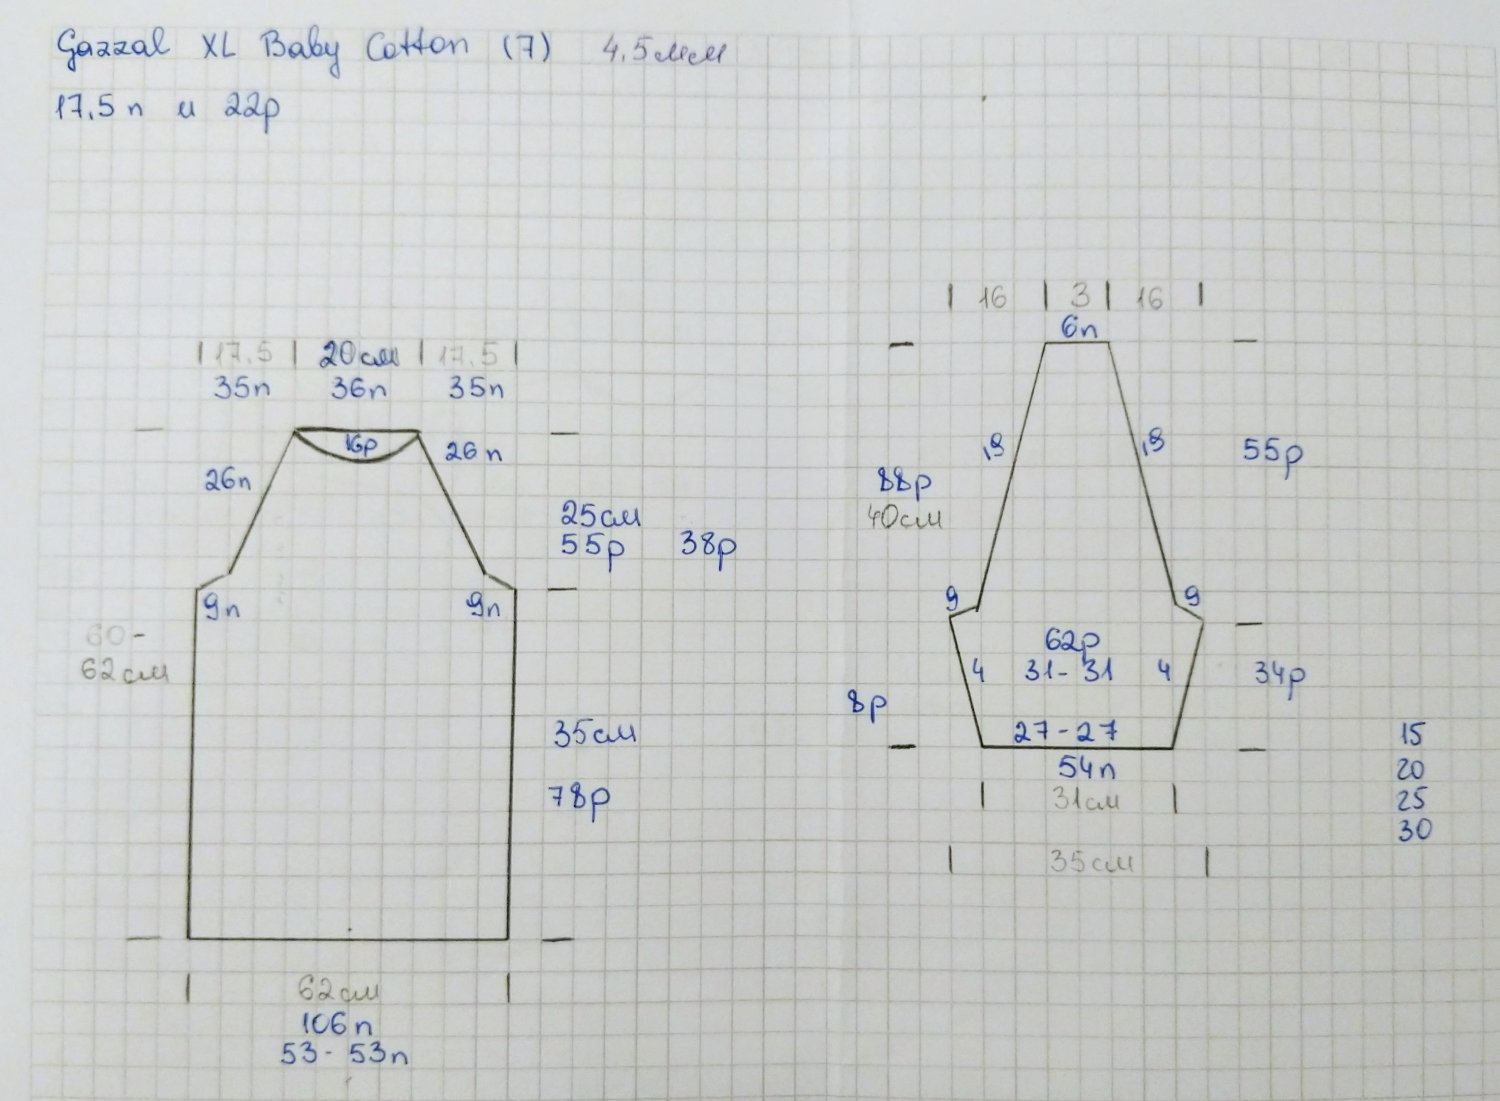 Gazzal XL Baby Cotton (7) 4.5мм
17.5п и 22р
17.5 20см 17.5
35п 36п 35п
16р
26п 26п
25см
55р 38р
9п 9п
60-
62см
35см
78р
62см
106п
53-53п
16 3 16
6п
19 19
88р
40см
55р
9 9
62р
4 31-31 4
34р
8р
27-27
54п
31см
35см
15
20
25
30